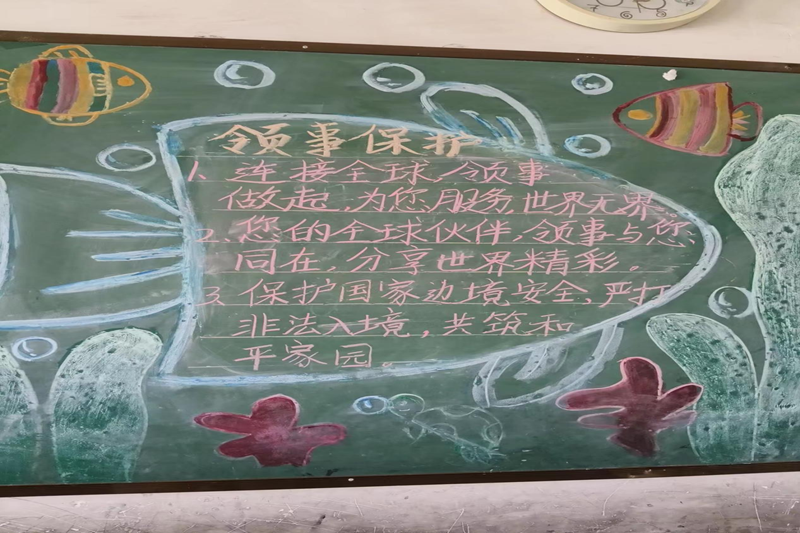 领事保护
1. 连接全球,领事
做起,为您服务,世界无界。
2. 您的全球伙伴,领事与您
同在,分享世界精彩。
3. 保护国家边境安全,严打
非法入境,共筑和
平家园。